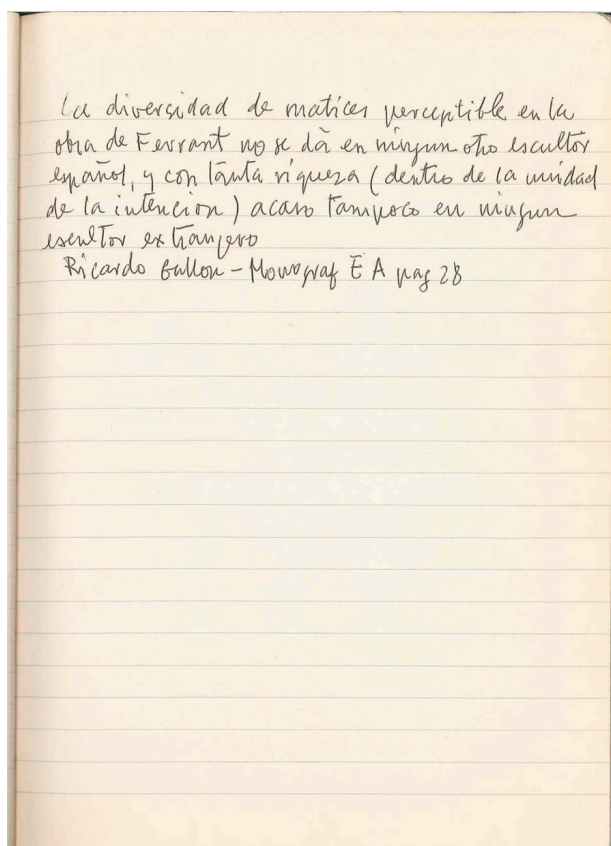 La diversidad de matices perceptible en la
obra de Ferrant no se dá en ningun otro escultor
español, y con tanta riqueza (dentro de la unidad
de la intencion) acaso tampoco en ningun
escultor extranjero
Ricardo Gullon - Monograf E A pag 28